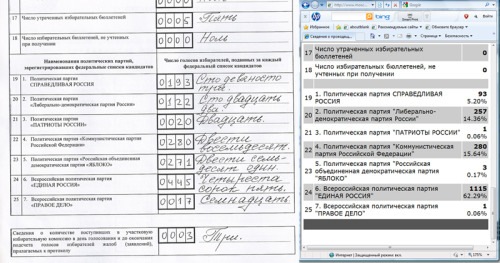 17 Число утраченных избирательных бюллетеней 0005 Пять
18 Число избирательных бюллетеней, не учтенных
при получении 0000 Ноль
Наименования политических партий,
зарегистрировавших федеральные списки кандидатов
Число голосов избирателей, поданных за каждый
федеральный список кандидатов
19 1. Политическая партия
СПРАВЕДЛИВАЯ РОССИЯ 0193 Сто девяносто
три.
20 2. Политическая партия
«Либерально-демократическая партия России» 0122 Сто двадцать
два.
21 3. Политическая партия
«ПАТРИОТЫ РОССИИ» 0020 Двадцать.
22 4. Политическая партия «Коммунистическая партия
Российской Федерации» 0280 Двести
восемьдесят.
23 5. Политическая партия «Российская объединенная
демократическая партия «ЯБЛОКО» 0271 Двести семь-
десят один
24 6. Всероссийская политическая партия
«ЕДИНАЯ РОССИЯ» 0445 Четыреста
сорок пять.
25 7. Всероссийская политическая партия
«ПРАВОЕ ДЕЛО» 0017 Семнадцать.
Сведения о количестве поступивших в участковую
избирательную комиссию в день голосования и до окончания
подсчета голосов избирателей жалоб (заявлений),
прилагаемых к протоколу 0003 Три.
bing
17 Число утраченных избирательных
бюллетеней 0
18 Число избирательных бюллетеней, не
учтенных при получении 0
19 1. Политическая партия СПРАВЕДЛИВАЯ
РОССИЯ 93
5.20%
20 2. Политическая партия "Либерально-
демократическая партия России" 257
14.36%
21 3. Политическая партия "ПАТРИОТЫ РОССИИ" 1
0.06%
22 4. Политическая партия "Коммунистическая
партия Российской Федерации" 280
15.64%
23 5. Политическая партия "Российская
объединенная демократическая партия
"ЯБЛОКО" 3
0.17%
24 6. Всероссийская политическая партия
"ЕДИНАЯ РОССИЯ" 1115
62.29%
25 7. Всероссийская политическая партия
"ПРАВОЕ ДЕЛО" 1
0.06%
Интернет | Защищенный режим: вкл. 175%